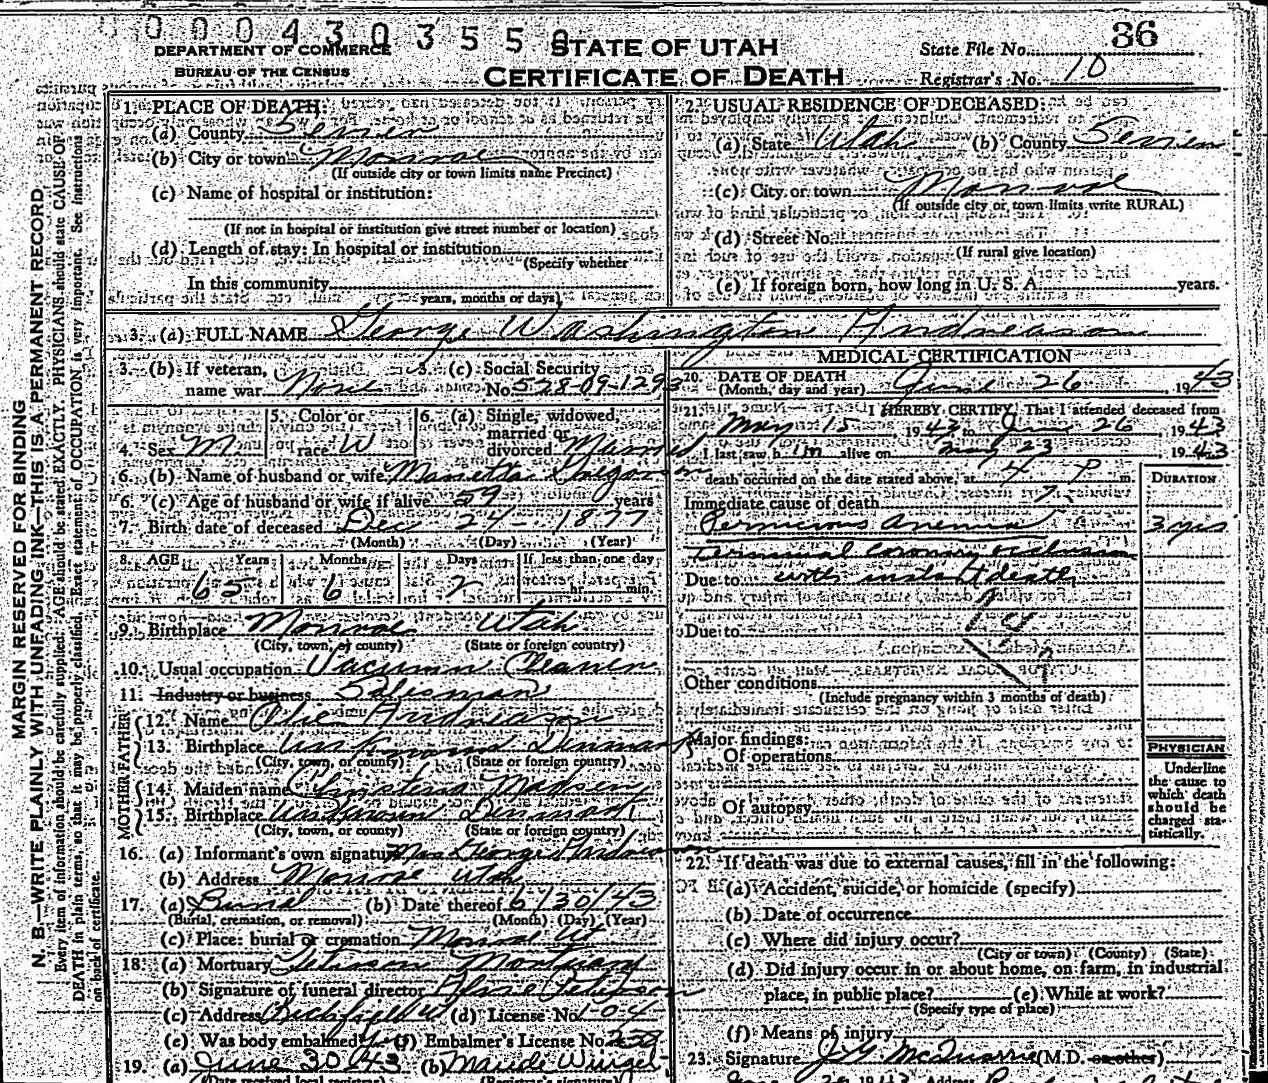 0 0 0 4 3 0 3 5 5 0
DEPARTMENT OF COMMERCE
BUREAU OF THE CENSUS
STATE OF UTAH
CERTIFICATE OF DEATH
State File No. 36
Registrar's No. 10
MARGIN RESERVED FOR BINDING
N. B.—WRITE PLAINLY WITH UNFADING INK—THIS IS A PERMANENT RECORD
Every item of information should be carefully supplied. AGE should be stated EXACTLY. PHYSICIANS should state CAUSE OF
DEATH in plain terms, so that it may be properly classified. Exact statement of OCCUPATION is very important. See instructions
on back of certificate.
1. PLACE OF DEATH:
(a) County Sevier
(b) City or town Monroe
(If outside city or town limits name Precinct)
(c) Name of hospital or institution:
(If not in hospital or institution give street number or location)
(d) Length of stay: In hospital or institution
(Specify whether
In this community
years, months or days)
2. USUAL RESIDENCE OF DECEASED:
(a) State Utah (b) County Sevier
(c) City or town Monroe
(If outside city or town limits write RURAL)
(d) Street No.
(If rural give location)
(e) If foreign born, how long in U. S. A. years.
3. (a) FULL NAME George Washington Andreason
3. (b) If veteran, name war None
3. (c) Social Security No. 528-09-1293
4. Sex M
5. Color or race W
6. (a) Single, widowed, married or divorced Married
6. (b) Name of husband or wife Marietta
6. (c) Age of husband or wife if alive 59 years
7. Birth date of deceased Dec 24 - 1877
(Month) (Day) (Year)
8. AGE Years Months Days If less than one day
65 6 2 hr. min.
9. Birthplace Monroe Utah
(City, town, or county) (State or foreign country)
10. Usual occupation Vacumn Cleaner
11. Industry or business Salesman
FATHER
12. Name Andreason
13. Birthplace Denmark
(City, town, or county) (State or foreign country)
MOTHER
14. Maiden name Madsen
15. Birthplace Denmark
(City, town, or county) (State or foreign country)
16. (a) Informant's own signature Mrs George Andreason
(b) Address Monroe Utah
17. (a) Burial (b) Date thereof 6/30/43
(Burial, cremation, or removal) (Month) (Day) (Year)
(c) Place: burial or cremation Monroe Ut
18. (a) Mortuary Mortuary
(b) Signature of funeral director
(c) Address Richfield U (d) License No. 104
(e) Was body embalmed? (f) Embalmer's License No.
19. (a) June 30 43 (b) Maude
(Date received local registrar) (Registrar's signature)
MEDICAL CERTIFICATION
20. DATE OF DEATH
(Month, day and year) June 26 1943
21. I HEREBY CERTIFY, That I attended deceased from
May 15 1943 to June 26, 1943
I last saw him alive on May 23 1943
death occurred on the date stated above, at 4 P m.
DURATION
Immediate cause of death
Pernicious Anemia 3 yrs
Terminal Coronary occlusion
Due to with instant death
Due to
Other conditions
(Include pregnancy within 3 months of death)
Major findings:
Of operations
Of autopsy
PHYSICIAN
Underline
the cause to
which death
should be
charged sta-
tistically.
22. If death was due to external causes, fill in the following:
(a) Accident, suicide, or homicide (specify)
(b) Date of occurrence
(c) Where did injury occur?
(City or town) (County) (State)
(d) Did injury occur in or about home, on farm, in industrial
place, in public place? (e) While at work?
(Specify type of place)
(f) Means of injury
23. Signature McQuarrie (M.D. or other)
Address